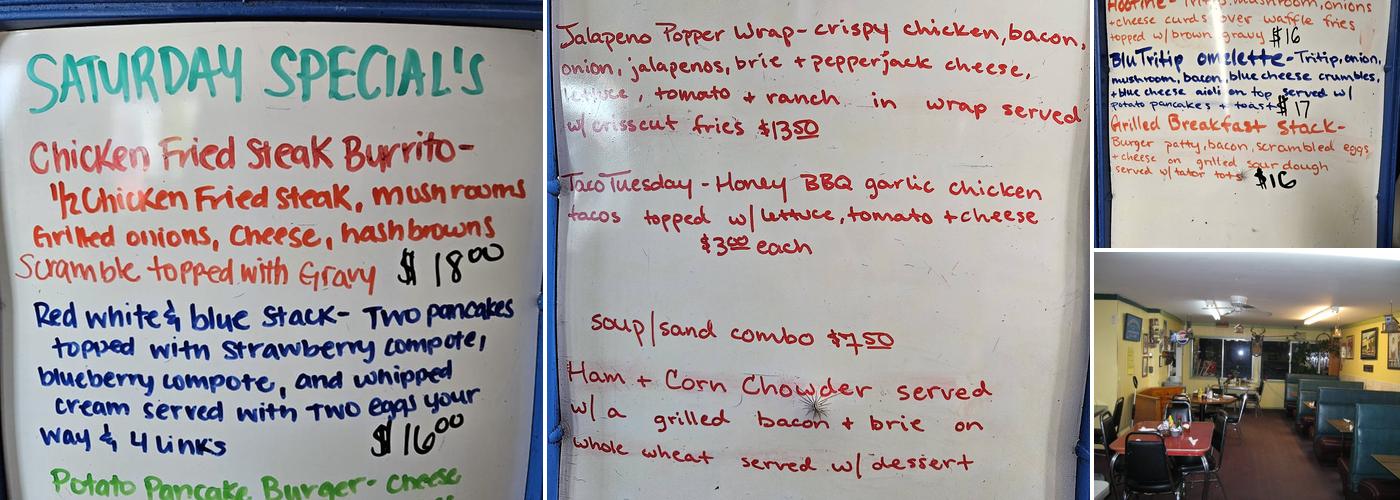 SATURDAY SPECIAL'S
Chicken Fried Steak Burrito-
1/2 Chicken Fried Steak, mushrooms
Grilled onions, Cheese, hashbrowns
Scramble topped with Gravy $18.00
Red white & blue Stack- Two pancakes
topped with strawberry compote,
blueberry compote, and whipped
cream served with Two eggs your
way & 4 links $16.00
Potato Pancake Burger- cheese
Jalapeno Popper Wrap- crispy chicken, bacon,
onion, jalapenos, brie + pepperjack cheese,
lettuce, tomato + ranch in wrap served
w/ crisscut fries $13.50
Taco Tuesday - Honey BBQ garlic chicken
tacos topped w/ lettuce, tomato + cheese
$3.00 each
soup/sand combo $7.50
Ham + Corn Chowder served
w/ a grilled bacon + brie on
whole wheat served w/ dessert
mushroom, onions
+cheese curds over waffle fries
topped w/ brown gravy $16
Blu Tritip omelette- Tritip, onion,
mushroom, bacon, blue cheese crumbles,
+blue cheese aioli on top served w/
potato pancakes + toast $17
Grilled Breakfast Stack-
Burger patty, bacon, scrambled eggs
+cheese on grilled sourdough
served w/ tator tots $16